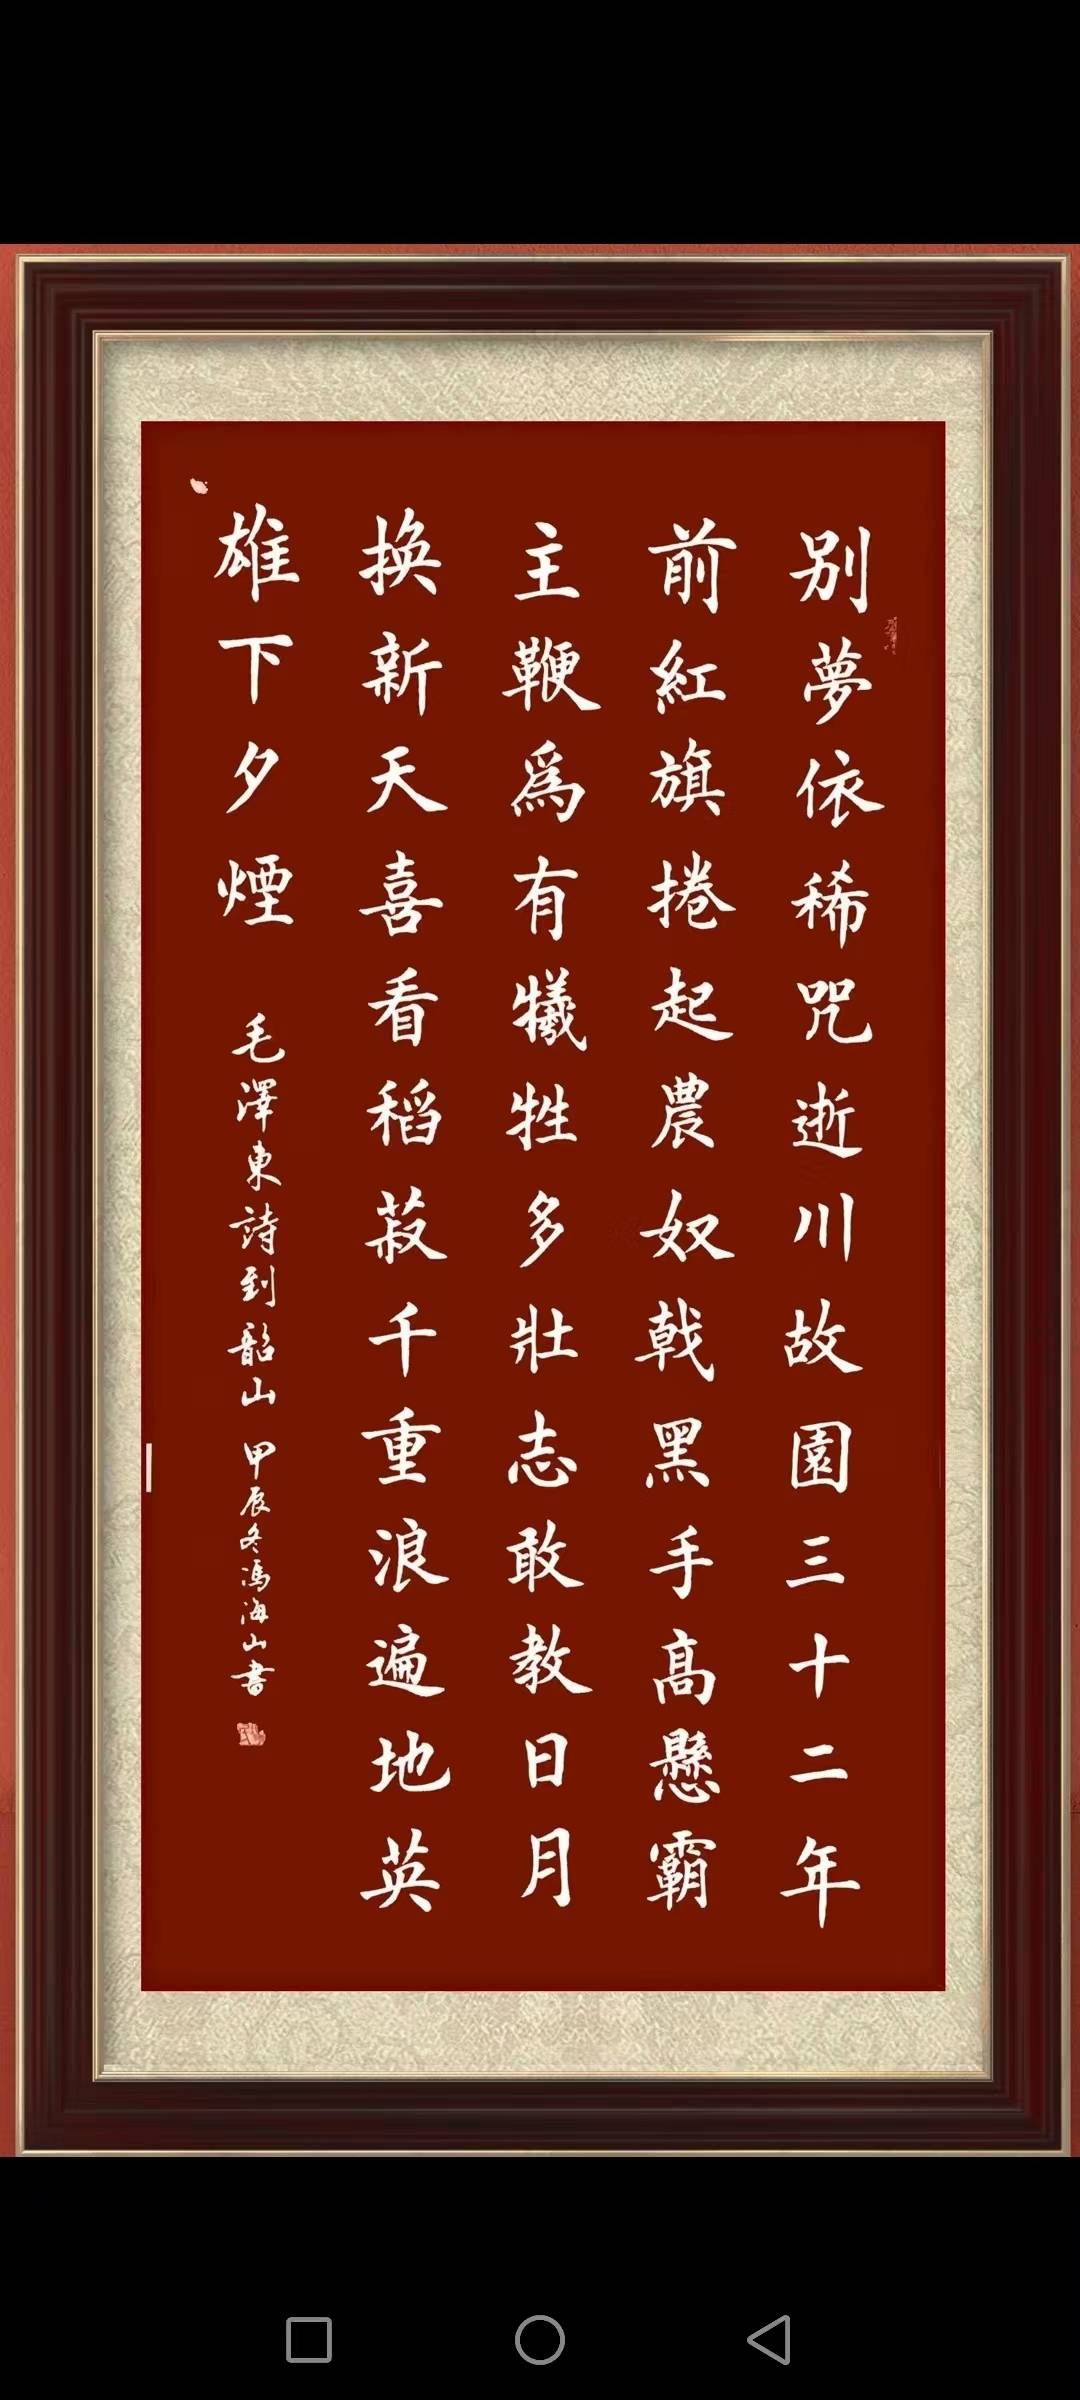 别夢依稀咒逝川故園三十二年
前紅旗捲起農奴戟黑手高懸霸
主鞭為有犠牲多壯志敢教日月
换新天喜看稻菽千重浪遍地英
雄下夕煙
毛澤東詩到韶山 甲辰冬馮海山書